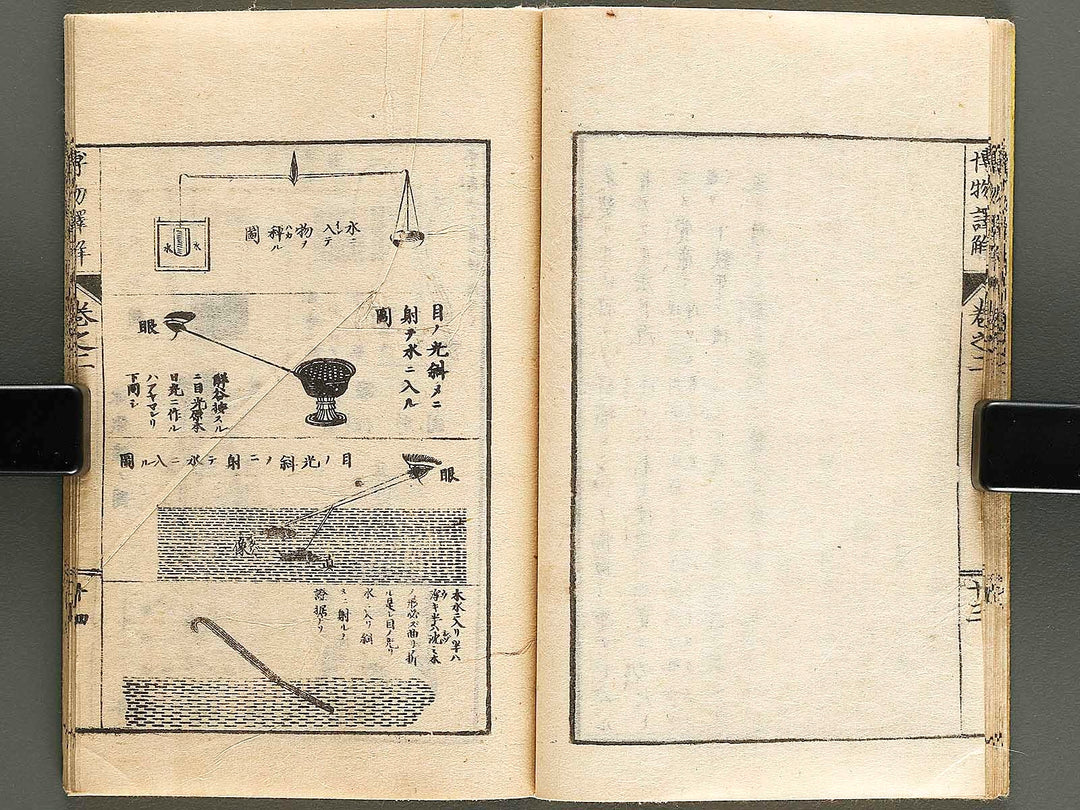 博物譯解
卷之二
十三
水ニ
入テ
物ノ
秤ル
圖
水
水
目ノ光斜メニ
射テ水ニ入ル
圖
眼
解谷按スル
ニ目光原本
日光ニ作ル
ハアヤマレリ
下同シ
目ノ光斜ノニ射テ水ニ入ル圖
眼
像
木水ニ入リ半ハ
浮キ半ハ沈ミ木
ノ形必ズ曲リ折
ル是レ目ノ光リ
水ニ入リ斜
メニ射ルノ
證據ナリ
博物譯解
卷之二
十四